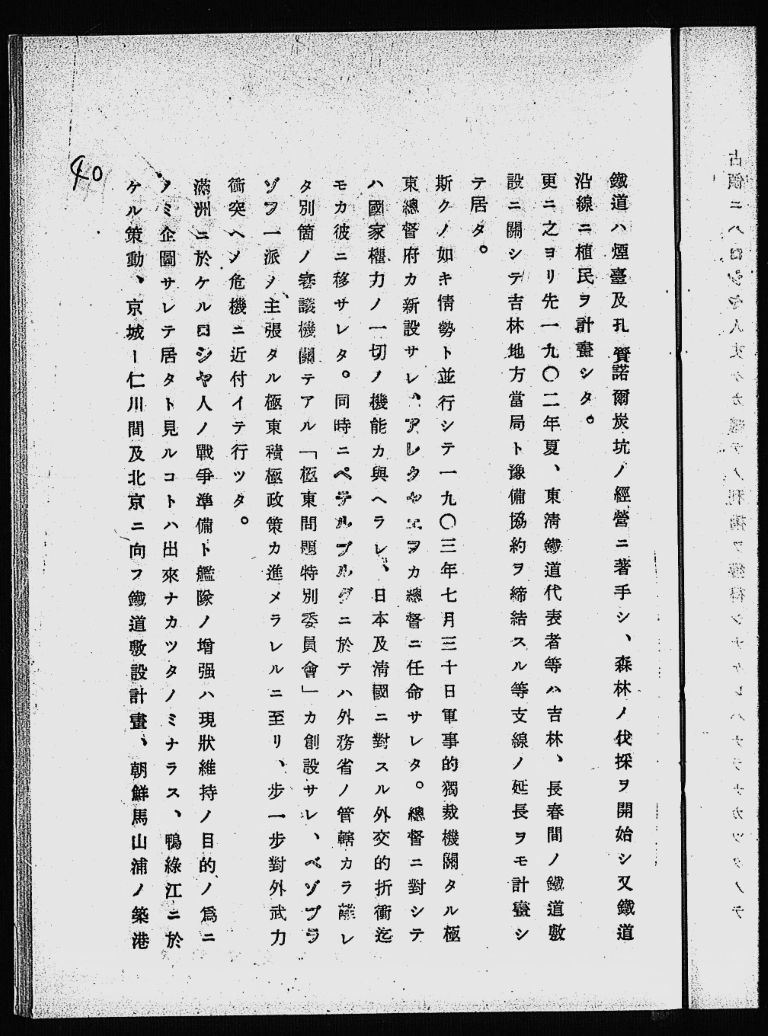 鐵道ハ煙臺及孔賀諾爾炭坑ノ經營ニ著手シ、森林ノ伐採ヲ開始シ又鐵道
沿線ニ植民ヲ計畫シタ。
更ニ之ヨリ先一九〇二年夏、東淸鐵道代表者等ハ吉林、長春間ノ鐵道敷
設ニ關シテ吉林地方當局ト豫備協約ヲ締結スル等支線ノ延長ヲモ計畫シ
テ居タ。
斯クノ如キ情勢ト並行シテ一九〇三年七月三十日軍事的獨裁機關タル極
東總督府カ新設サレ、アレクセーエヲカ總督ニ任命サレタ。總督ニ對シテ
ハ國家權力ノ一切ノ機能カ與ヘラレ、日本及淸國ニ對スル外交的折衝迄
モカ彼ニ移サレタ。同時ニペテルブルグニ於テハ外務省ノ管轄カラ離レ
タ別箇ノ審議機關テアル「極東問題特別委員會」カ創設サレ、ベゾブラ
ゾフ一派ノ主張タル極東積極政策カ進メラレルニ至リ、步一步對外武力
衝突ヘノ危機ニ近付イテ行ツタ。
滿洲ニ於ケルロシヤ人ノ戰爭準備ト艦隊ノ增强ハ現狀維持ノ目的ノ爲ニ
ノミ企圖サレテ居タト見ルコトハ出來ナカツタノミナラス、鴨綠江ニ於
ケル策動、京城ー仁川間及北京ニ向フ鐵道敷設計畫、朝鮮馬山浦ノ築港
40